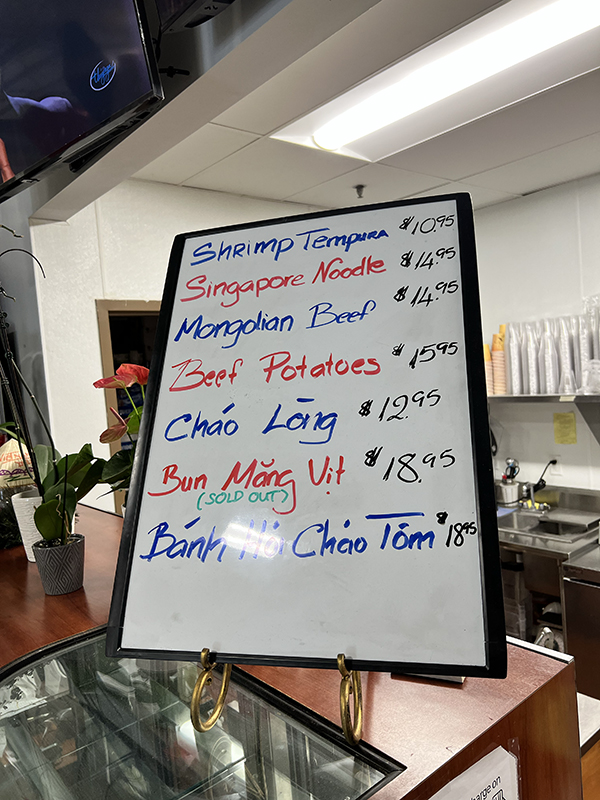 Shrimp Tempura $10.95
Singapore Noodle $14.95
Mongolian Beef $14.95
Beef Potatoes $15.95
Cháo Lòng $12.95
Bun Măng Vịt $18.95
(SOLD OUT)
Bánh Hỏi Chảo Tôm $18.95
charge on